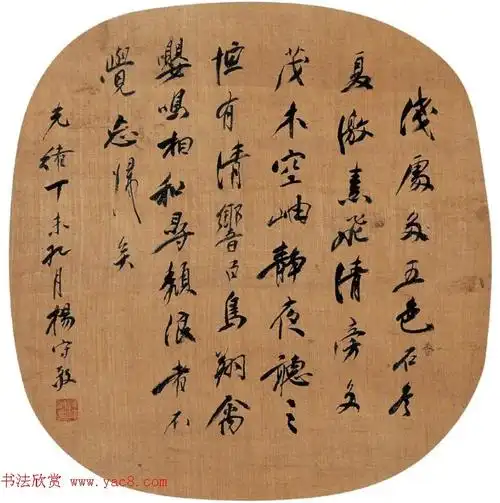 淺處多五色石冬
夏激素飛清傍多
茂木空岫靜夜聽之
恒有清響百鳥翔禽
嚶鳴相和尋頹浪者不
覺忘歸矣
光緒丁未九月楊守敬
书法欣赏 www.yac8.com